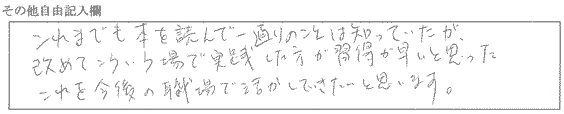 その他自由記入欄
これまでも本を読んで一通りのことは知っていたが、
改めてこういう場で実践した方が習得が早いと思った
これを今後の職場で活かしていきたいと思います。